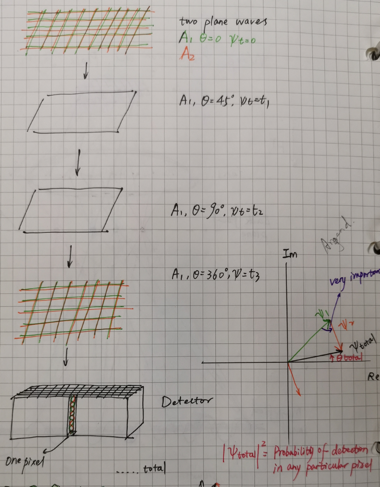 two plane waves
A₁ θ=0 ψt=0
A₂
A₁, θ=45°, ψt=t₁
A₁, θ=90°, ψt=t₂
A₁, θ=360°, ψ=t₃
Argand
Im
very important
ψ₁
ψ₂
ψtotal
θtotal
Re
Detector
One pixel
...... total
|ψtotal|² = Probability of detection
in any particular pixel